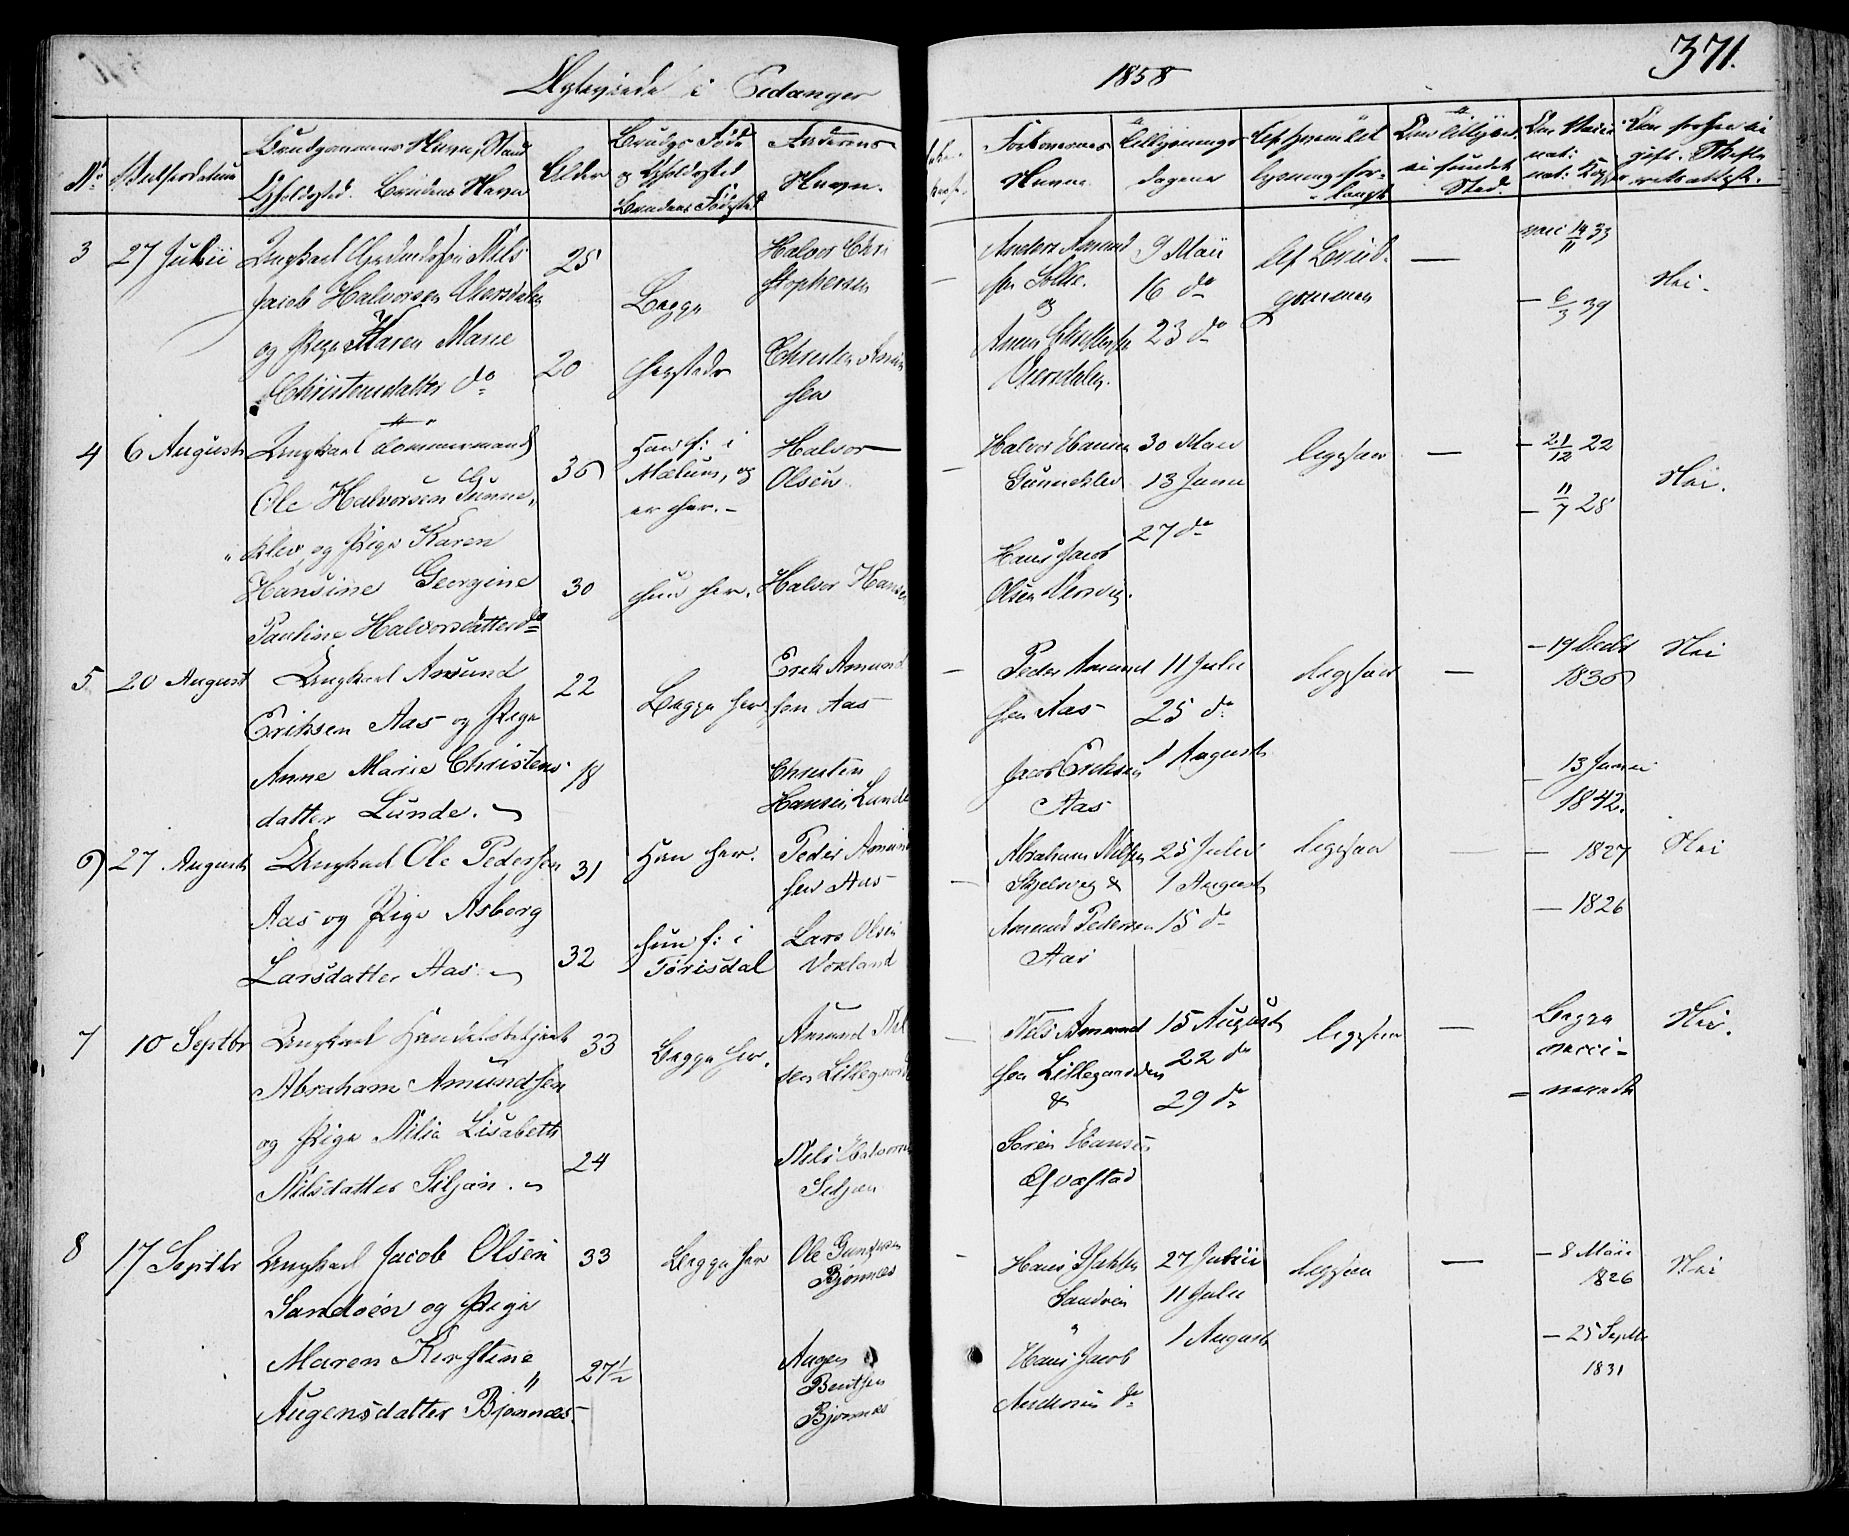 Ægteviede i Eidanger
1858
371.
No
Vielsesdatum
Brudgommens Navn, Stand
Opholdsted. Brudens Navn
Alder
Brudgs Føde
& Opholdsted
Brudens Fødested
Faderens
Navn.
Forlovernes
Navne
Tillysnings
dagene
Af hvem
lysning for-
langt
Sted
3
27 Julii
Ungkarl
Jacob Halvorsen
og Pige Karen Marie
Christensdatter do
25
20
Begge
hersteds
Halvor Chri
stophersen
Christen
sen
Anders Amund
sen
og
9 Maii
16 do
23 do
Af Brud-
gommen
—
14/11 33
— 6/3 39
Nei.
4
6 August
Ungkarl Tømmermand
Ole Halvorsen Gunne-
klev, og Pige Karen
Hansine Georgine
Pauline Halvorsdatter do
36
30
Han f: i
Mælum, og
er her. –
hun her.
Halvor
Olsen
Halvor Hansen
Halvor Hansen
Gunneklev
Hans Jacob
Olsen
30 Maii
13 Junii
27 do
ligesaa
—
— 21/12 22
— 11/7 28
Nei.
5
20 August
Ungkarl Amund
Eriksen Aas og Pige
Anne Marie Christens-
datter Lunde.
22
18
Begge her
Erik Amund
sen Aas
Christen
Hansen Lunde
Peder Amund
sen Aas
Jacob Eriksen
Aas
11 Julii
25 do
1 August
ligesaa
—
— 19 Decbr
1836
— 13 Junii
1842.
Nei
6
27 August
Ungkarl Ole Pedersen
Aas og Pige Asberg
Larsdatter Aas.
31
32
Han her.
hun f: i
Tørisdal
Peder Amund
sen Aas
Lars Olsen
Voxland
Abraham Nilsen
Skjelvig &
Amund Pedersen
Aas
25 Julii
1 August
15 do
ligesaa
—
— 1827
— 1826
Nei
7
10 Septbr
Ungkarl Handelsbetjent
Abraham Amundsen
og Pige Nilia Lisabeth
Nilsdatter Siljan.
33
24
Begge her.
Amund Nil
sen Lillegaarden
Nils Halvorsen
Siljan
Nils Amund
sen Lillegaarden
&
Søren Hansen
Qvæstad
15 August
22 do
29 do
ligesaa
—
Begge
Nei.
8
17 Septbr
Ungkarl Jacob Olsen
Sandøen og Pige
Maren Kirstine
Augensdatter Bjønnes
33
27½
Begge her
Ole Gundersen
Bjønnes
Augen
Bentsen
Bjønnes
Hans
Sandøen
Hans Jacob
Andersen do
27 Junii
11 Julii
1 August
ligesaa
—
— 8 Maii
1826
— 25 Septbr
1831
Nei